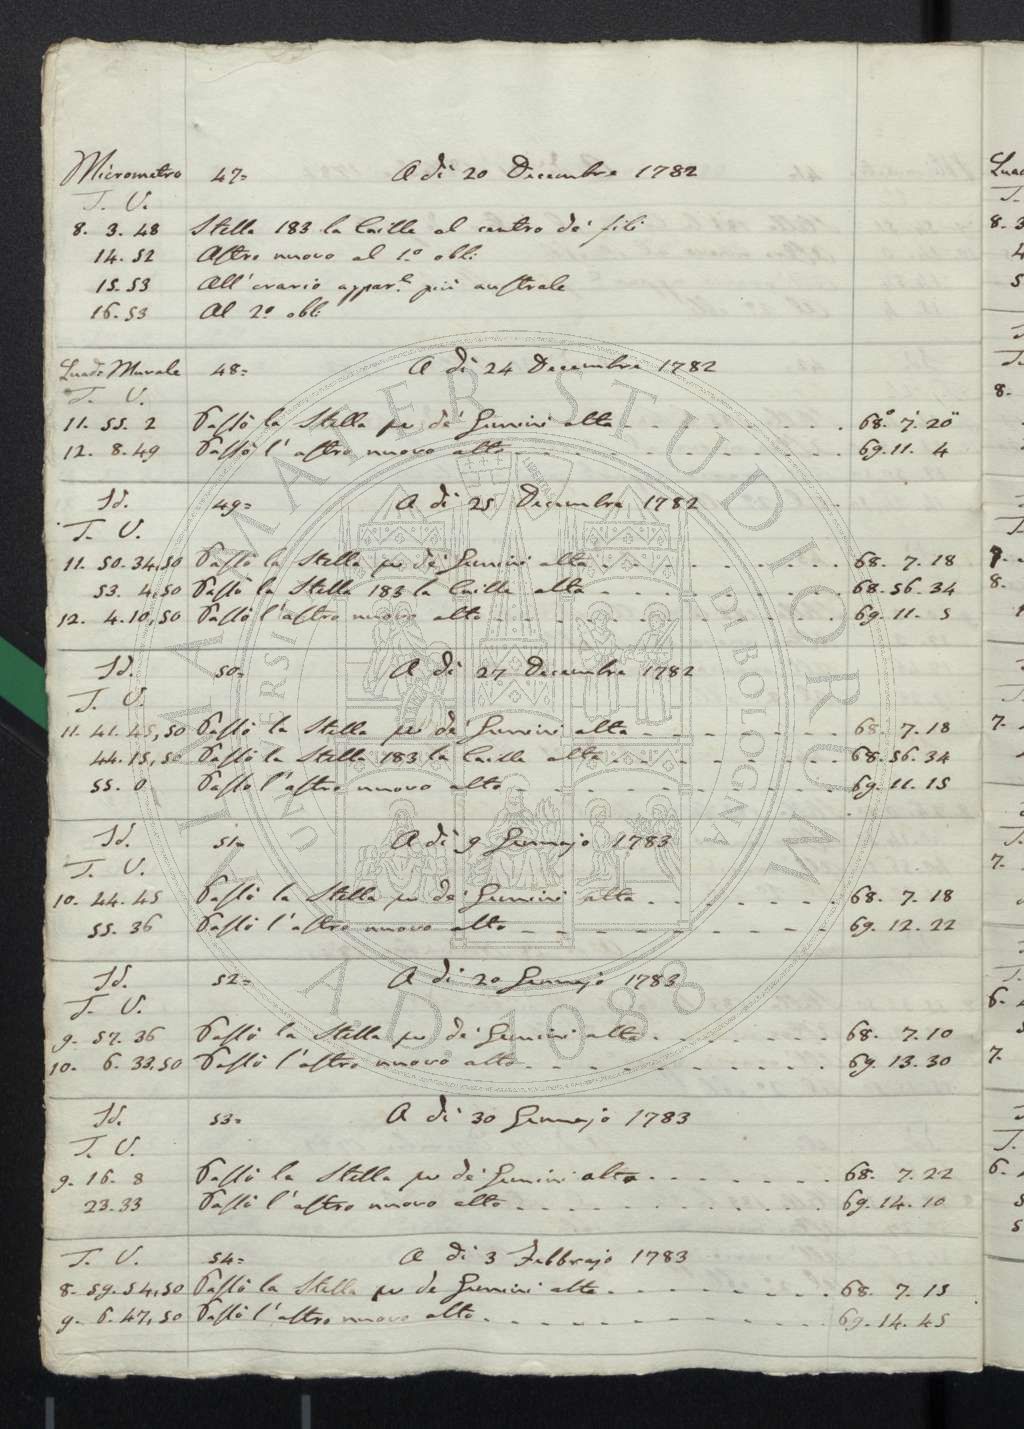 Micrometro 47= A di 20 Decembre 1782
T. V.
8. 3. 48 Stella 183 la Caille al centro de' fili
14. 52 Astro nuovo al 1.º obli
15. 53 All'orario appar.e più australe
16. 53 Al 2.º obli
Quad.e Murale 48= A di 24 Decembre 1782
T. V.
11. 55. 2 Passò la Stella μ de' Gemini alta 68.° 7.' 20"
12. 8. 49 Passò l'astro nuovo alto 69. 11. 4
Id. 49= A di 25 Decembre 1782
T. V.
11. 50. 34,50 Passò la Stella μ de' Gemini alta 68. 7. 18
53. 4,50 Passò la Stella 183 la Caille alta 68. 56. 34
12. 4. 10,50 Passò l'astro nuovo alto 69. 11. 5
Id. 50= A di 27 Decembre 1782
T. V.
11. 41. 45,50 Passò la Stella μ de' Gemini alta 68. 7. 18
44. 15,50 Passò la Stella 183 la Caille alta 68. 56. 34
55. 0 Passò l'astro nuovo alto 69. 11. 15
Id. 51= A di 9 Gennajo 1783
T. V.
10. 44. 45 Passò la Stella μ de' Gemini alta 68. 7. 18
55. 36 Passò l'astro nuovo alto 69. 12. 22
Id. 52= A di 20 Gennajo 1783
T. V.
9. 57. 36 Passò la Stella μ de' Gemini alta 68. 7. 10
10. 6. 33,50 Passò l'astro nuovo alto 69. 13. 30
Id. 53= A di 30 Gennajo 1783
T. V.
9. 16. 8 Passò la Stella μ de' Gemini alta 68. 7. 22
23. 33 Passò l'astro nuovo alto 69. 14. 10
T. V. 54= A di 3 Febbrajo 1783
8. 59. 54,50 Passò la Stella μ de Gemini alta 68. 7. 15
9. 6. 47,50 Passò l'astro nuovo alto 69. 14. 45
ALMA MATER STUDIORUM
UNIVERSITÀ DI BOLOGNA
A.D. 1088